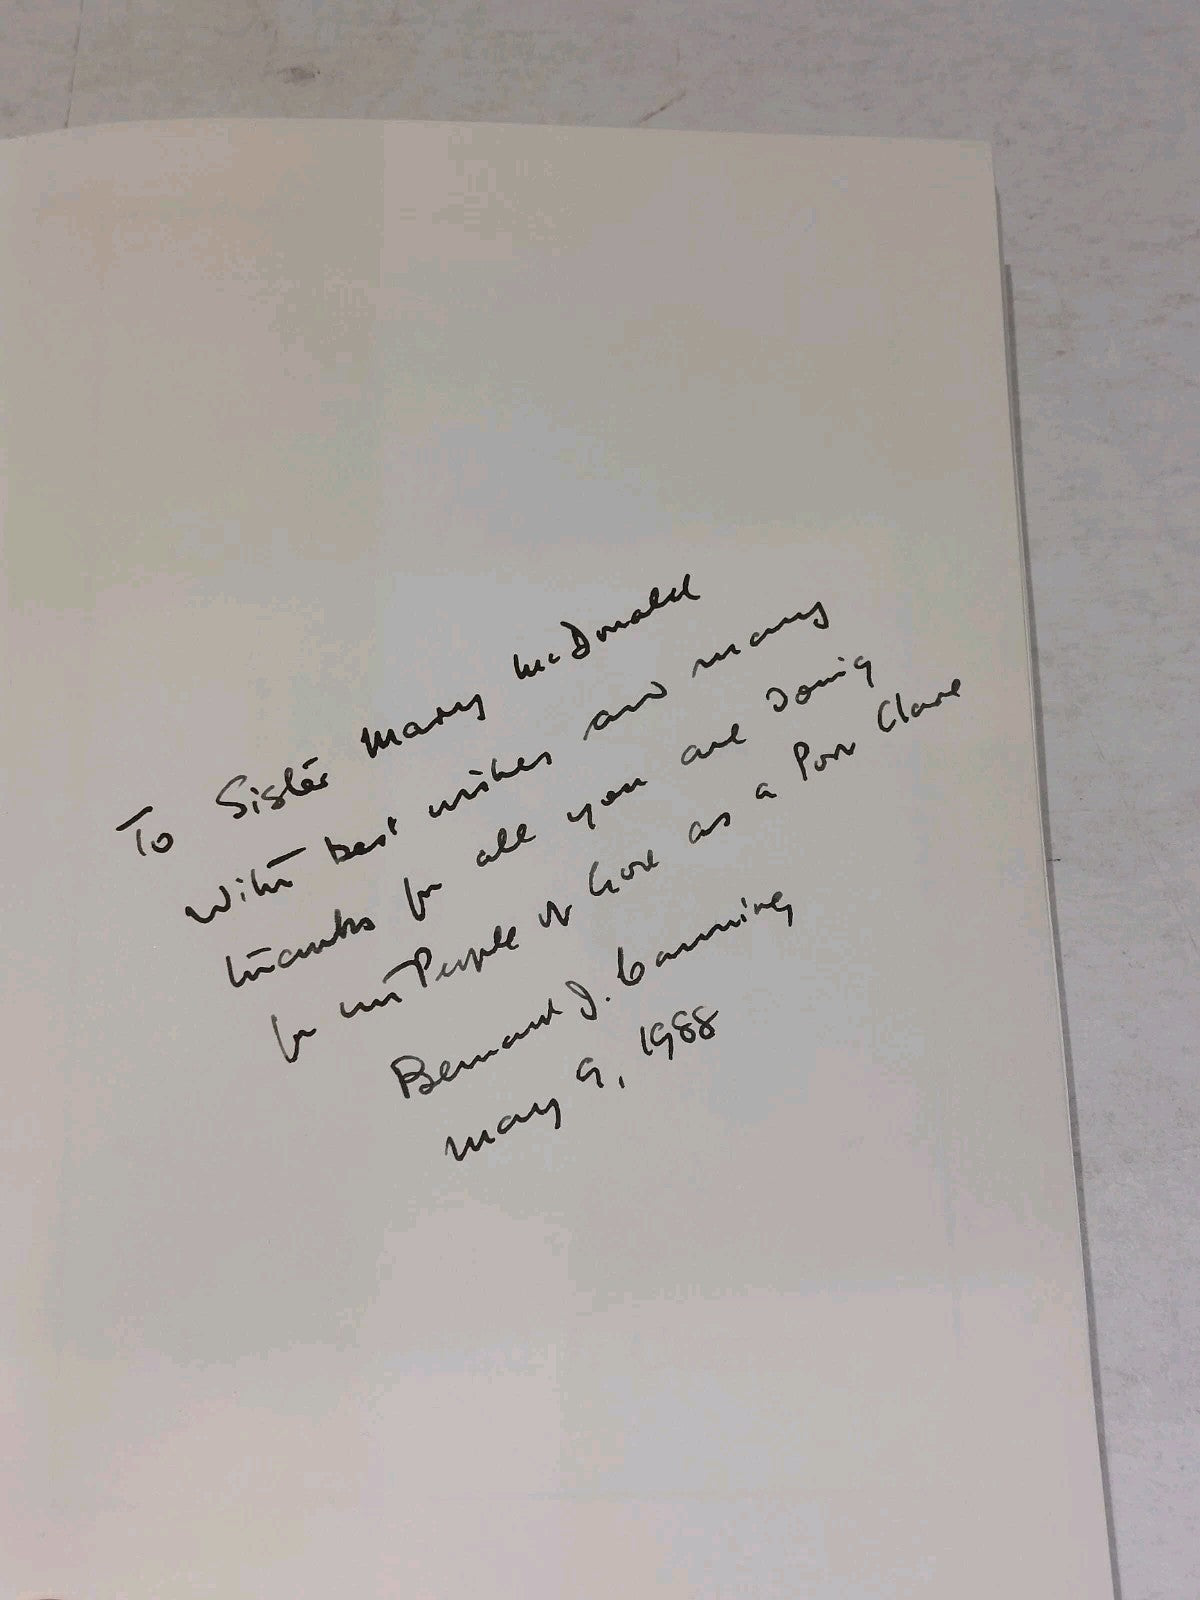 To Sister Mary McDonald
With best wishes and many
thanks for all you are doing
for the People of God as a Poor Clare
Bernard J. Canning
May 9, 1988